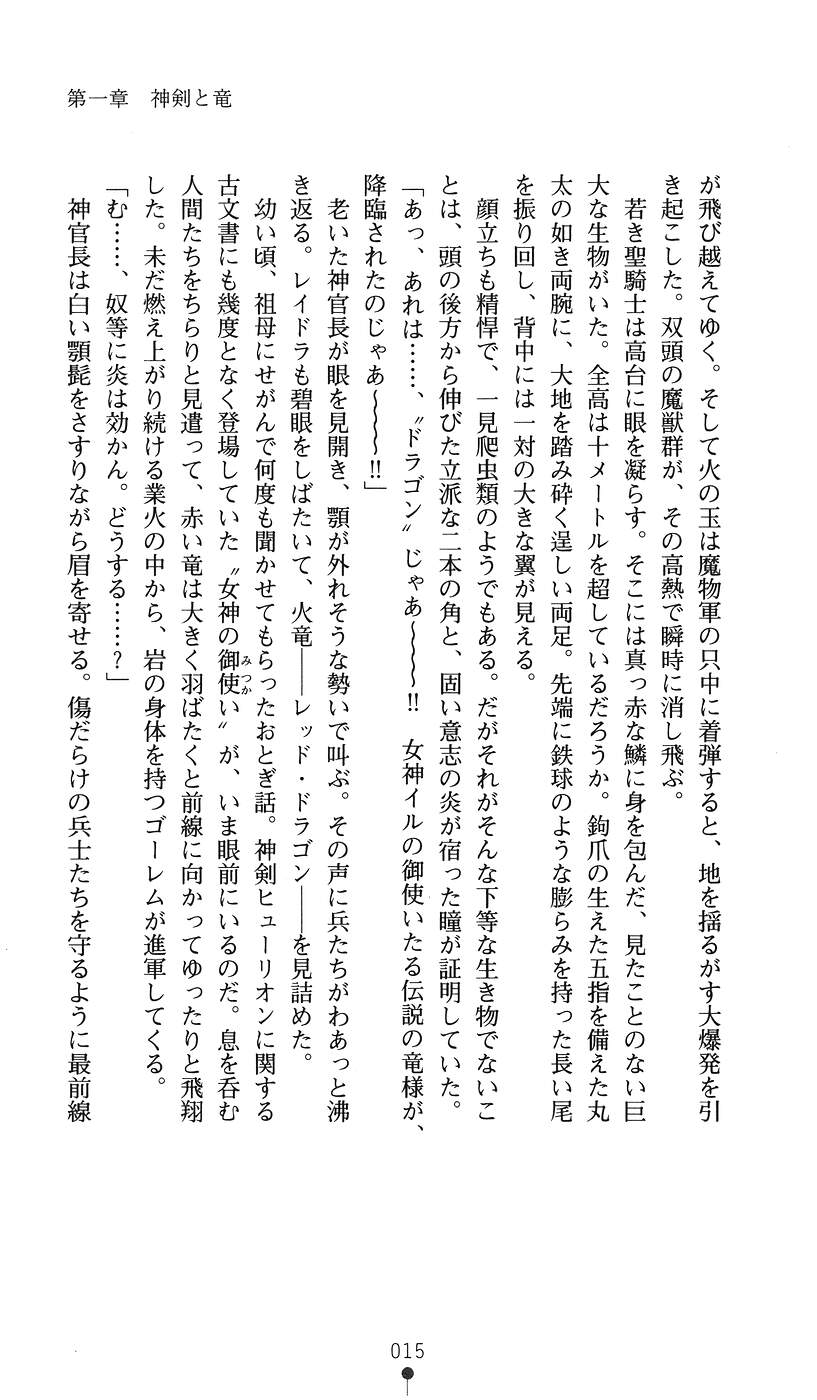 第一章　神剣と竜
が飛び越えてゆく。そして火の玉は魔物軍の只中に着弾すると、地を揺るがす大爆発を引
き起こした。双頭の魔獣群が、その高熱で瞬時に消し飛ぶ。
　若き聖騎士は高台に眼を凝らす。そこには真っ赤な鱗に身を包んだ、見たことのない巨
大な生物がいた。全高は十メートルを超しているだろうか。鉤爪の生えた五指を備えた丸
太の如き両腕に、大地を踏み砕く逞しい両足。先端に鉄球のような膨らみを持った長い尾
を振り回し、背中には一対の大きな翼が見える。
　顔立ちも精悍で、一見爬虫類のようでもある。だがそれがそんな下等な生き物でないこ
とは、頭の後方から伸びた立派な二本の角と、固い意志の炎が宿った瞳が証明していた。
「あっ、あれは……、〝ドラゴン〟じゃあ～～～‼　女神イルの御使いたる伝説の竜様が、
降臨されたのじゃあ～～～‼」
　老いた神官長が眼を見開き、顎が外れそうな勢いで叫ぶ。その声に兵たちがわあっと沸
き返る。レイドラも碧眼をしばたいて、火竜――レッド・ドラゴン――を見詰めた。
　幼い頃、祖母にせがんで何度も聞かせてもらったおとぎ話。神剣ヒューリオンに関する
古文書にも幾度となく登場していた〝女神の御使い〟が、いま眼前にいるのだ。息を呑む
みつか
人間たちをちらりと見遣って、赤い竜は大きく羽ばたくと前線に向かってゆったりと飛翔
した。未だ燃え上がり続ける業火の中から、岩の身体を持つゴーレムが進軍してくる。
「む……、奴等に炎は効かん。どうする……？」
　神官長は白い顎髭をさすりながら眉を寄せる。傷だらけの兵士たちを守るように最前線
015